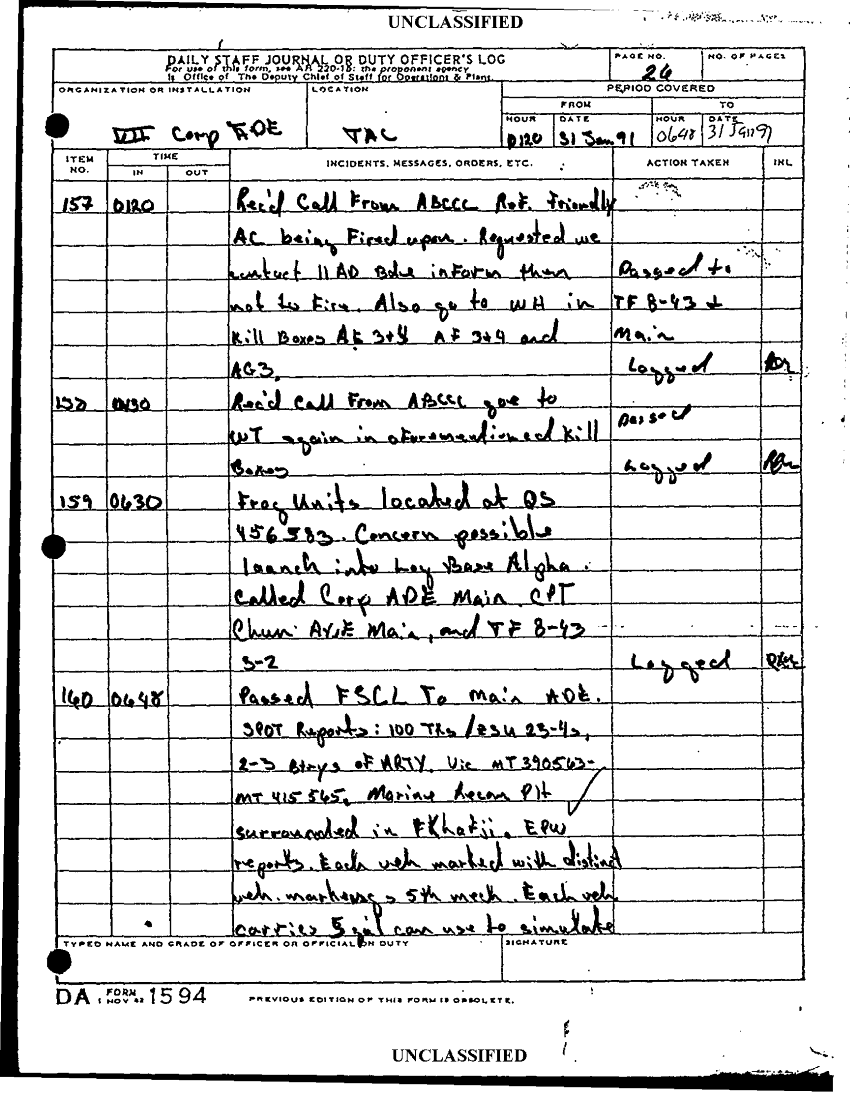 UNCLASSIFIED
DAILY STAFF JOURNAL OR DUTY OFFICER'S LOG
For use of this form, see AR 220-15: the proponent agency
is Office of The Deputy Chief of Staff for Operations & Plans.
PAGE NO.
26
NO. OF PAGES
ORGANIZATION OR INSTALLATION
VII Corp ADE
LOCATION
TAC
PERIOD COVERED
FROM
TO
HOUR
DATE
HOUR
DATE
0120
31 Jan 91
0648
31 Jan 91
ITEM NO.
TIME
IN
OUT
INCIDENTS, MESSAGES, ORDERS, ETC.
ACTION TAKEN
INL
157 0120 Rec'd Call From ABCCC Ref. Friendly
AC being Fired upon. Requested we
contact 11 AD Bde inform them Passed to
not to Fire. Also go to WH in TF 8-43 +
Kill Boxes AE 3+4 AF 3+4 and Main
AG3. Logged
158 0130 Rec'd Call From ABCCC goe to
WT again in aforementioned Kill Passed
Boxes Logged
159 0630 Frog Units located at QS
456583. Concern possible
launch into Log Base Alpha.
Called Corp ADE Main. CPT
Chun. Main, and TF 8-43
S-2 Logged
160 0648 Passed FSCL To Main ADE.
SPOT Reports: 100 TKs / ZSU 23-4s,
2-3 Btrys of ARTY. Vic MT 390563-
MT 415565. Marine Recon Plt
surrounded in Khafji. EPW
reports. Each veh marked with distinct
veh. 5th mech. Each veh
carries 5 gal can use to simulate
TYPED NAME AND GRADE OF OFFICER OR OFFICIAL ON DUTY
SIGNATURE
DA FORM 1 NOV 62 1594
PREVIOUS EDITION OF THIS FORM IS OBSOLETE.
UNCLASSIFIED